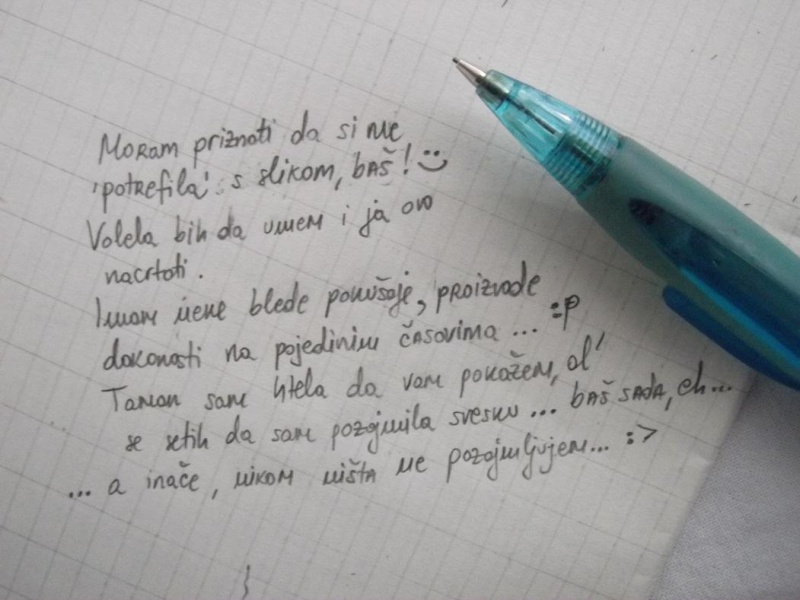 Moram priznati da si me
'potrefila' s slikom, baš! :)
Volela bih da umem i ja ovo
nacrtati.
Imam neke blede pokušaje, proizvode
dokonosti na pojedinim časovima ... :p
Taman sam htela da vam pokažem, al'
se setih da sam pozajmila svesku ... baš sada, eh...
... a inače, nikom ništa ne pozajmljujem... :>